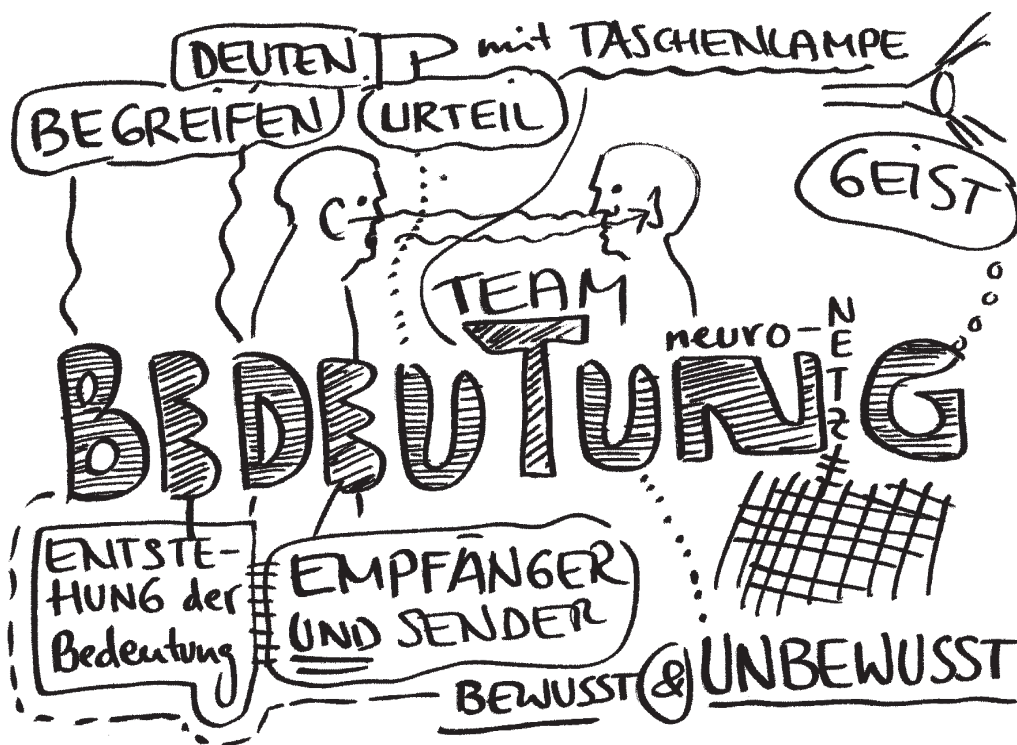 DEUTEN mit TASCHENLAMPE
BEGREIFEN URTEIL
GEIST
TEAM
neuro-NETZ
BEDEUTUNG
ENTSTE-
HUNG der
Bedeutung
EMPFÄNGER
UND SENDER
BEWUSST & UNBEWUSST